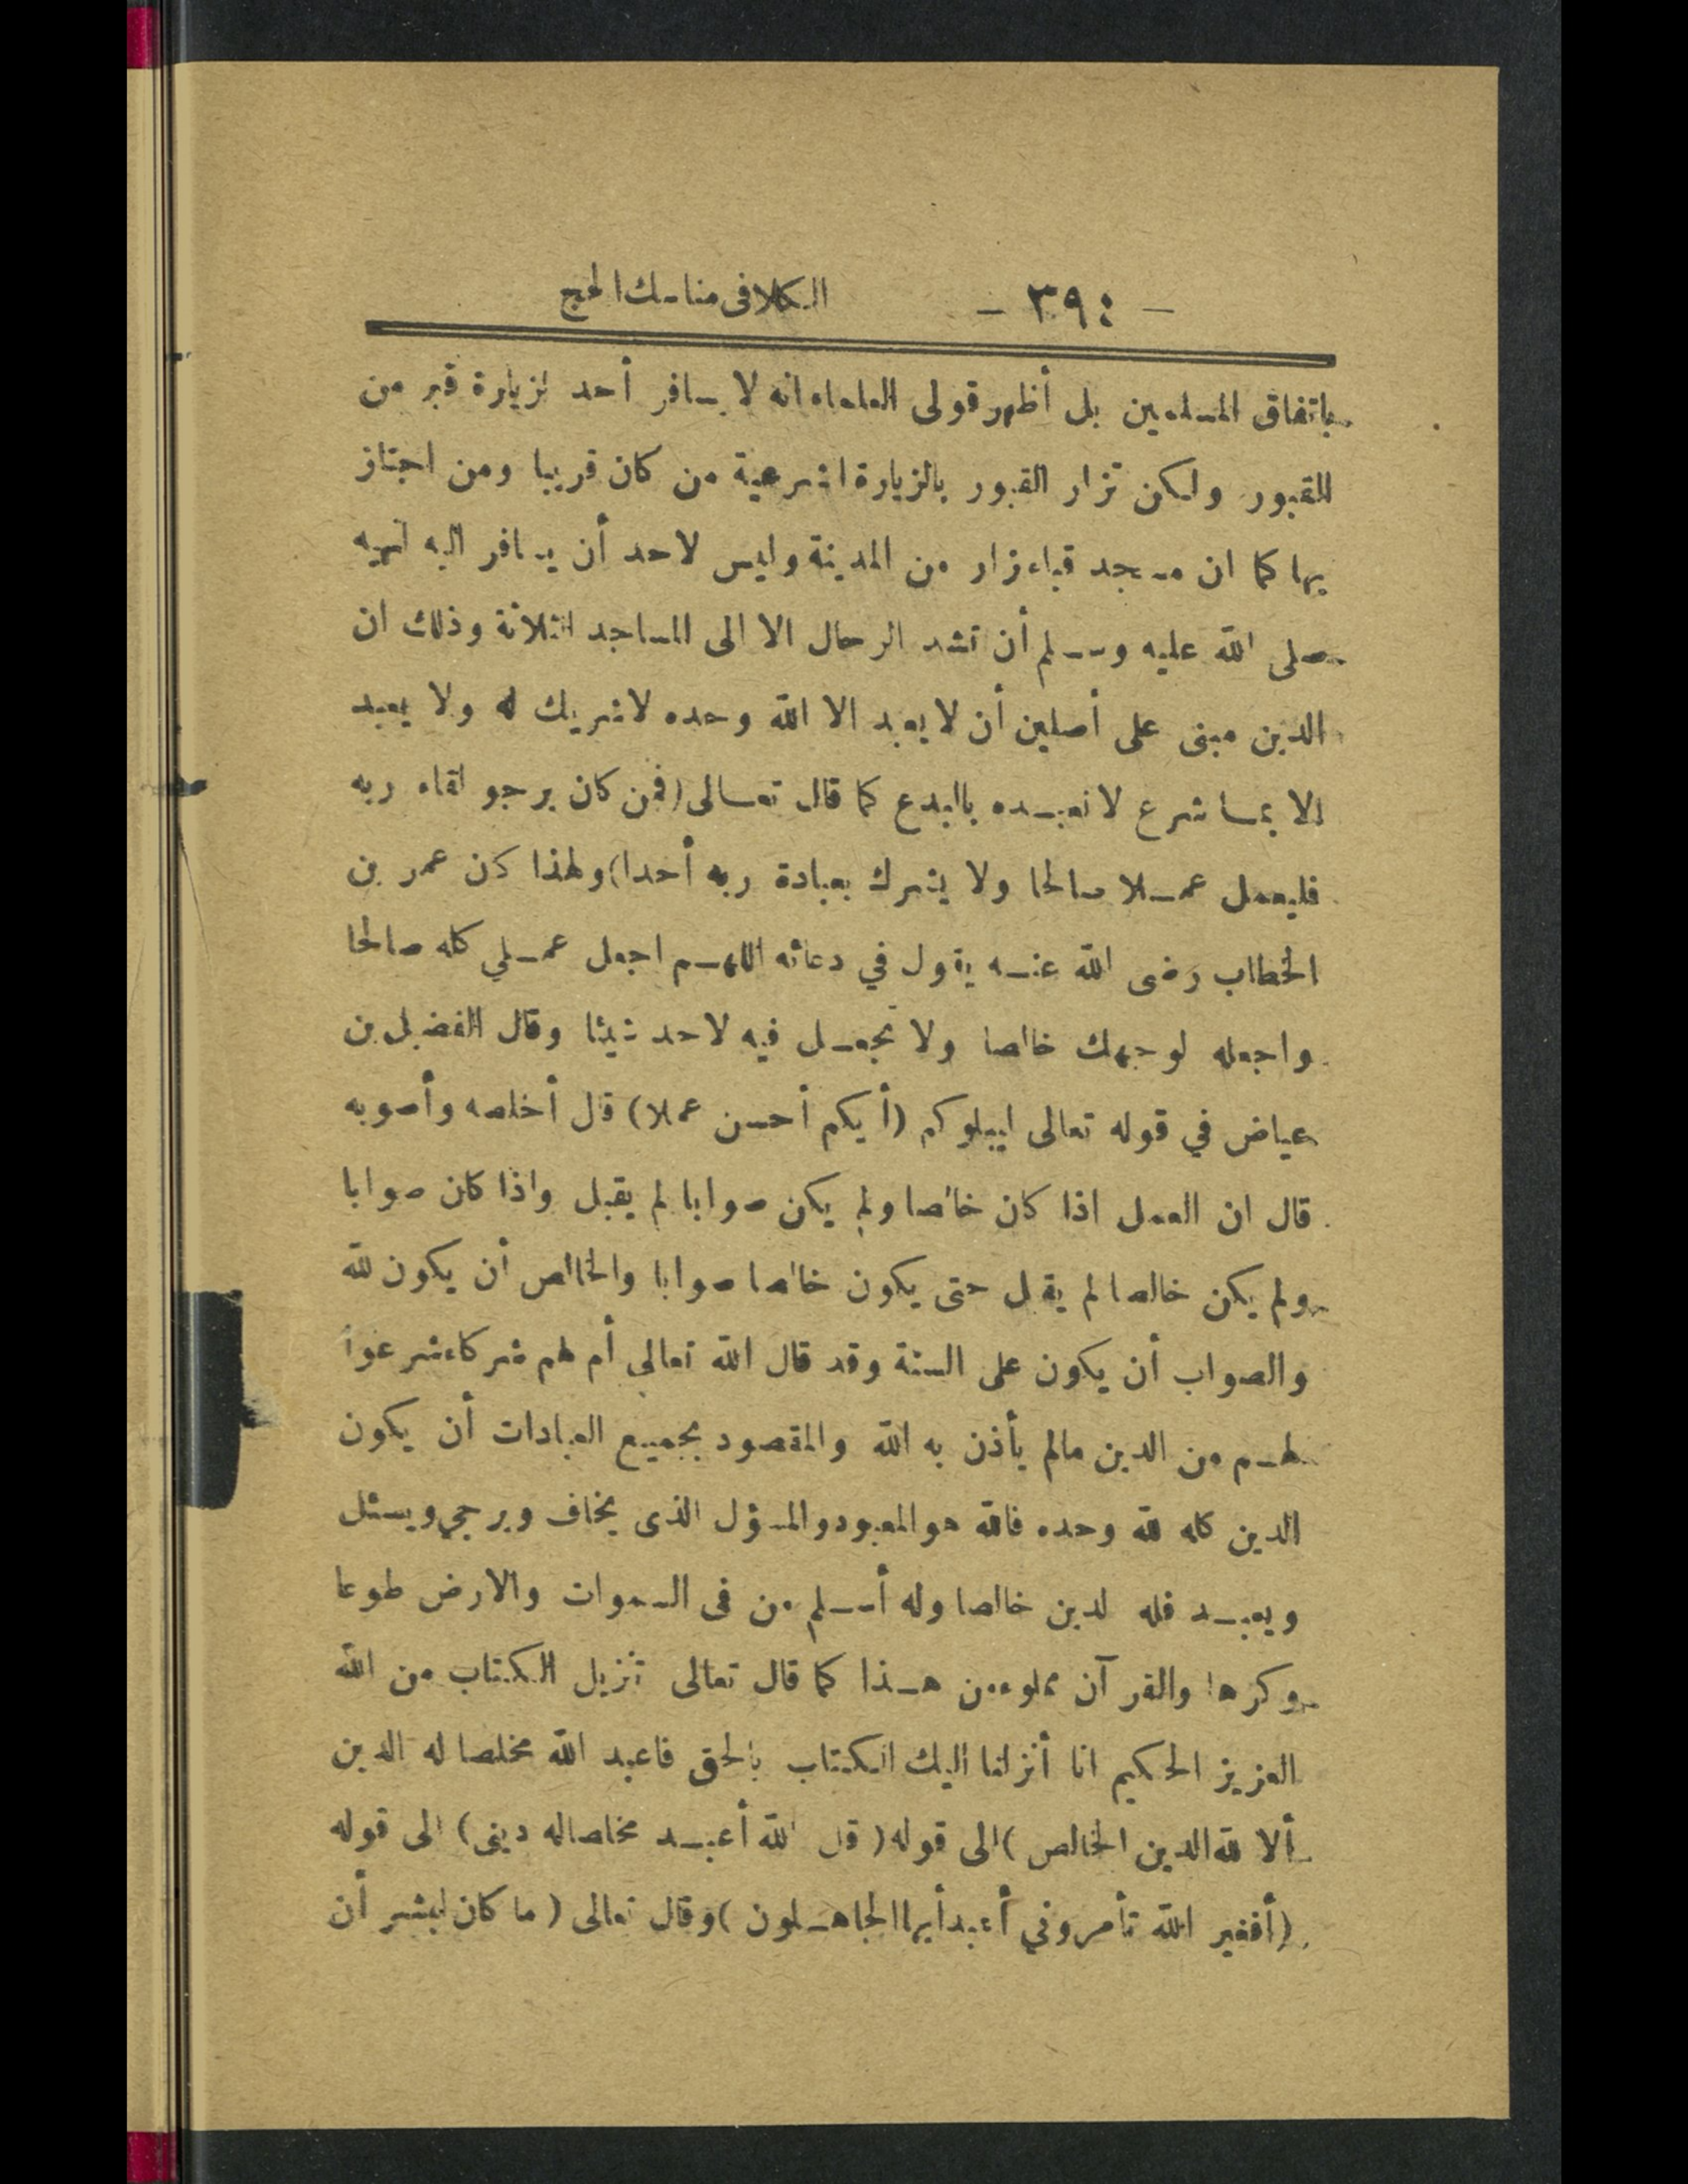 — ٣٩٤ — الكلا فى مناسك الحج
باتفاق المسلمين بل أظهر قولى العلماء انه لا يسافر أحد لزيارة قبر من
القبور ولكن تزار القبور بالزيارة الشرعية من كان قريبا ومن اجتاز
بها كما ان مسجد قباء تزار من المدينة وليس لاحد أن يسافر اليه لنهيه
صلى الله عليه وسلم أن تشد الرحال الا الى المساجد الثلاثة وذلك ان
الدين مبنى على أصلين أن لا يعبد الا الله وحده لا شريك له ولا يعبد
الا بما شرع لا نعبده بالبدع كما قال تعالى (فمن كان يرجو لقاء ربه
فليعمل عملا صالحا ولا يشرك بعبادة ربه أحدا) ولهذا كان عمر بن
الخطاب رضى الله عنه يقول في دعائه اللهم اجعل عملي كله صالحا
واجعله لوجهك خالصا ولا تجعل فيه لاحد شيئا وقال الفضيل بن
عياض في قوله تعالى ليبلوكم (أيكم أحسن عملا) قال أخلصه وأصوبه
قال ان العمل اذا كان خالصا ولم يكن صوابا لم يقبل واذا كان صوابا
ولم يكن خالصا لم يقبل حتى يكون خالصا صوابا والخالص أن يكون لله
والصواب أن يكون على السنة وقد قال الله تعالي أم لهم شركاء شرعوا
لهم من الدين مالم يأذن به الله والمقصود بجميع العبادات أن يكون
الدين كله لله وحده فالله هو المعبود والمسؤل الذى يخاف ويرجي ويسئل
ويعبد فله لدين خالصا وله أسلم من فى السموات والارض طوعا
وكرها والقرآن مملوء من هذا كما قال تعالى تنزيل الكتاب من الله
العزيز الحكيم انا أنزلنا اليك الكتاب بالحق فاعبد الله مخلصا له الدين
ألا لله الدين الخالص) الى قوله (قل الله أعبد مخلصا له دينى) الى قوله
(أفغير الله تأمروني أعبد أيها الجاهلون) وقال تعالى (ما كان لبشر أن